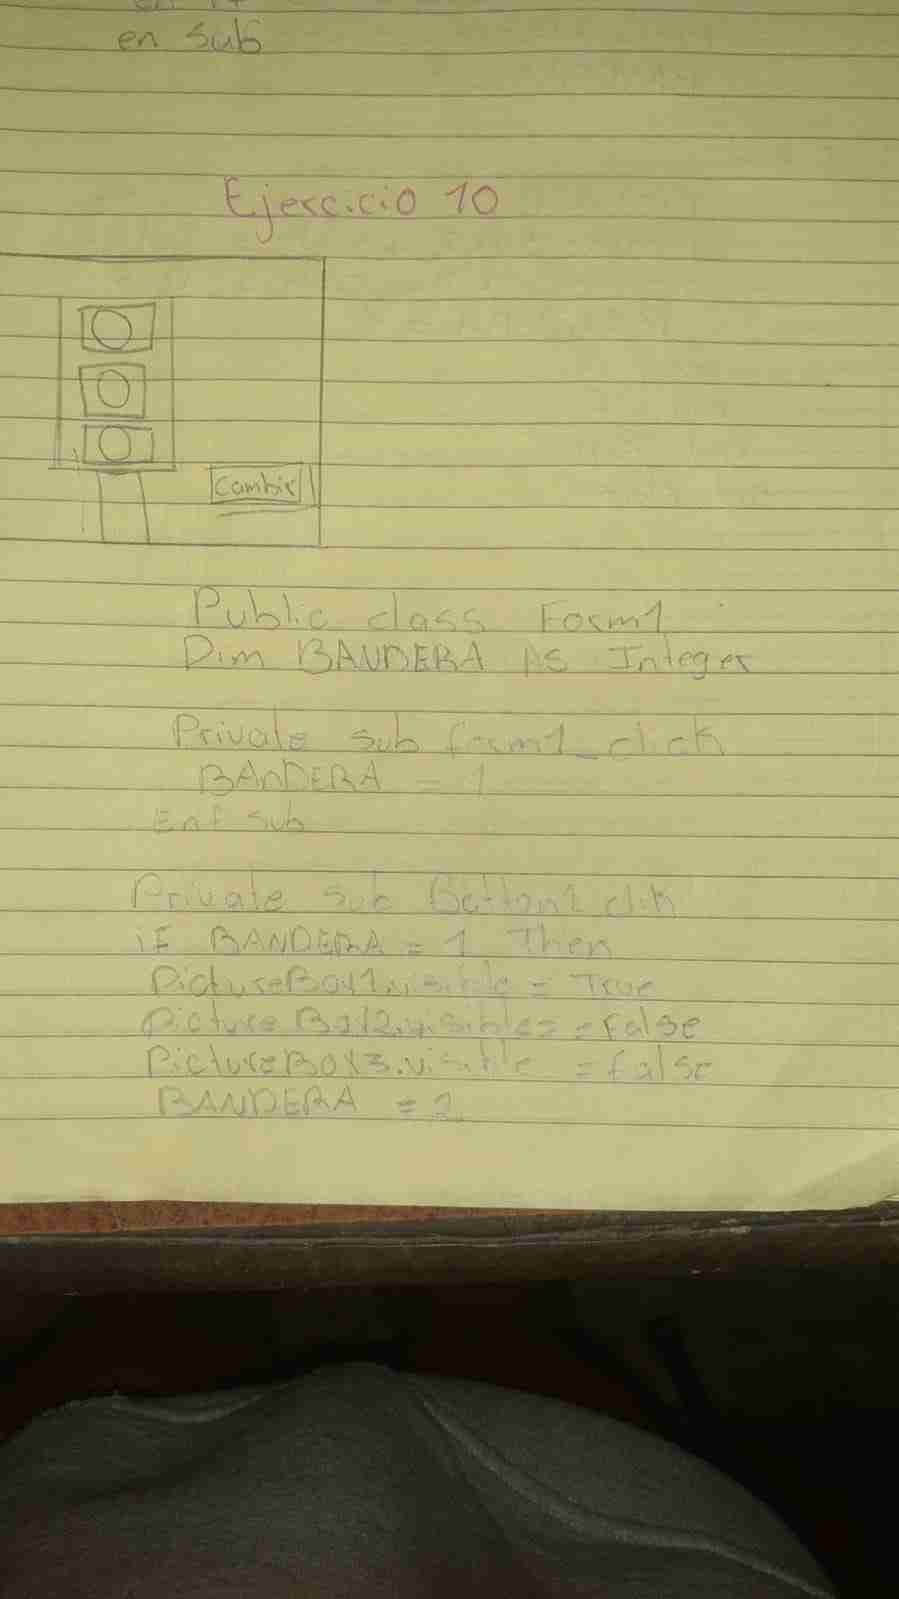 en Sub
Ejercicio 10
Cambir
Public class Form1
Dim BANDERA AS Integer
Private sub form1_click
BANDERA = 1
Enf sub
Private sub Botton1 clik
if BANDERA = 1 Then
PictureBox1.visible = True
Picture Box2.visible = = false
PictureBox3.visible = false
BANDERA =